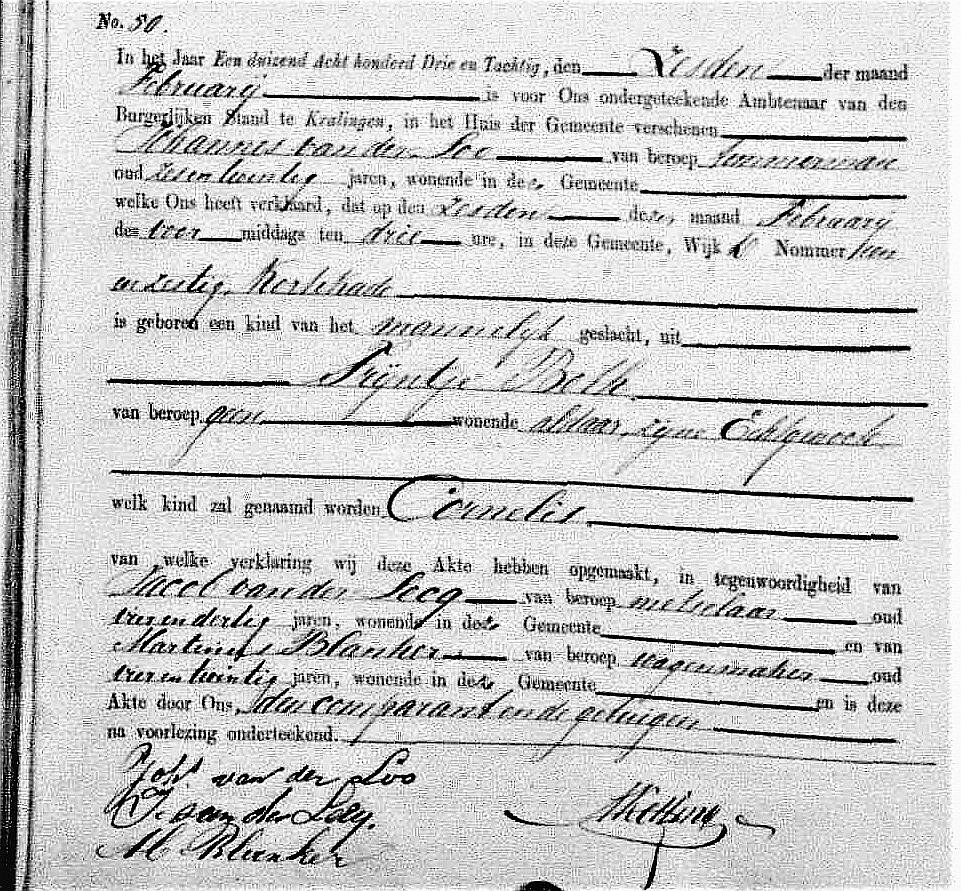 No. 50.
In het Jaar Een duizend Acht honderd Drie en Tachtig, den Zesden der maand
February is voor Ons ondergeteekende Ambtenaar van den
Burgerlijken Stand te Kralingen, in het Huis der Gemeente verschenen
Johannes van der Loo van beroep Timmerman
oud zesentwintig jaren, wonende in deze Gemeente
welke Ons heeft verklaard, dat op den zesden dezer maand February
des voor middags ten drie ure, in deze Gemeente, Wijk Nommer
en zestig, Kerkkade
is geboren een kind van het mannelijk geslacht, uit
Trijntje Bolk
van beroep geen wonende aldaar, zijne Echtgenoote
welk kind zal genaamd worden Cornelis
van welke verklaring wij deze Akte hebben opgemaakt, in tegenwoordigheid van
Jacob van der Leeg van beroep metselaar oud
vierendertig jaren, wonende in deze Gemeente en van
Martinus Blanker van beroep wagenmaker oud
vierentwintig jaren, wonende in deze Gemeente en is deze
Akte door Ons, den comparant en de getuigen
na voorlezing onderteekend.
Johs van der Loo
J. van der Leeg.
M. Blanker